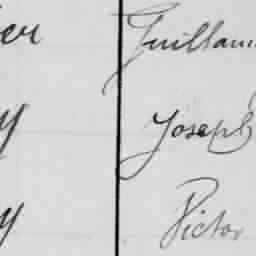 er Guillau
y Joseph
y Victor